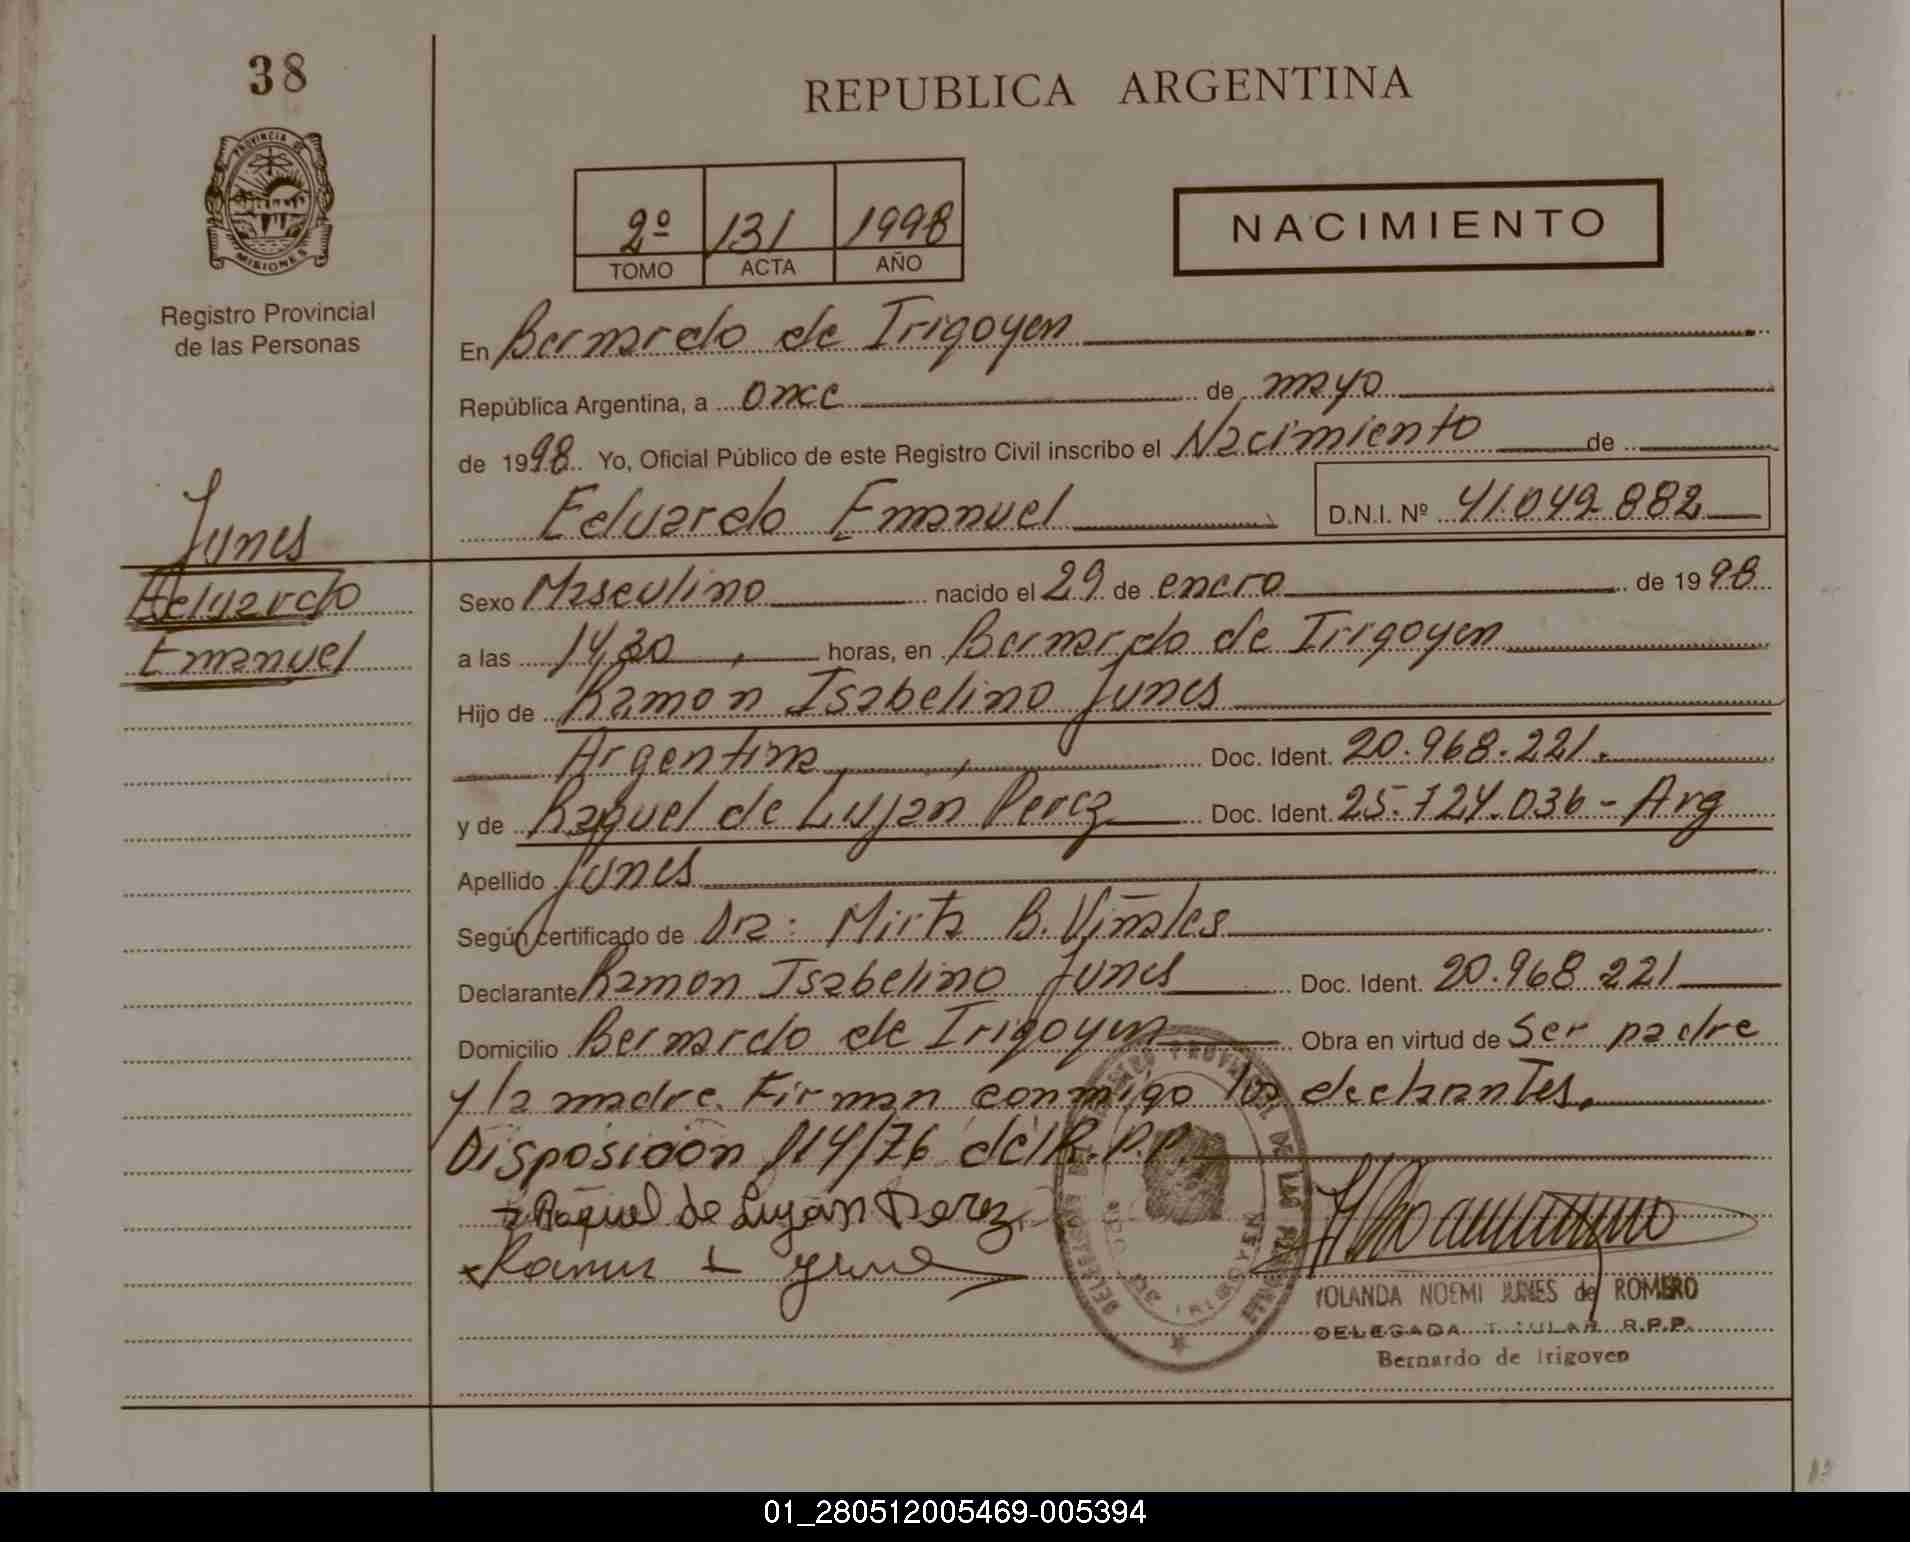 38
REPUBLICA ARGENTINA
PROVINCIA DE
MISIONES
Registro Provincial
de las Personas
2º 131 1998
TOMO ACTA AÑO
NACIMIENTO
En Bernardo de Irigoyen
República Argentina, a once de mayo
de 1998. Yo, Oficial Público de este Registro Civil inscribo el Nacimiento de
Eduardo Emanuel D.N.I. Nº 41.049.882
Junes
Eduardo
Emanuel
Sexo Masculino nacido el 29 de enero de 1998
a las 14,30 horas, en Bernardo de Irigoyen
Hijo de Ramon Isabelino Junes
Argentina, Doc. Ident. 20.968.221.
y de Raquel de Lujan Perez Doc. Ident. 25.724.036 - Arg
Apellido Junes
Según certificado de Dra: Mirta B. Viñales
Declarante Ramon Isabelino Junes Doc. Ident. 20.968 221
Domicilio Bernardo de Irigoyen Obra en virtud de Ser padre
y la madre. Firman conmigo los declarantes.
Disposicion 114/76 del R.P.P.
Raquel de Lujan Perez
YOLANDA NOEMI JUNES de ROMERO
DELEGADA TITULAR R.P.P.
Bernardo de Irigoyen
01_280512005469-005394